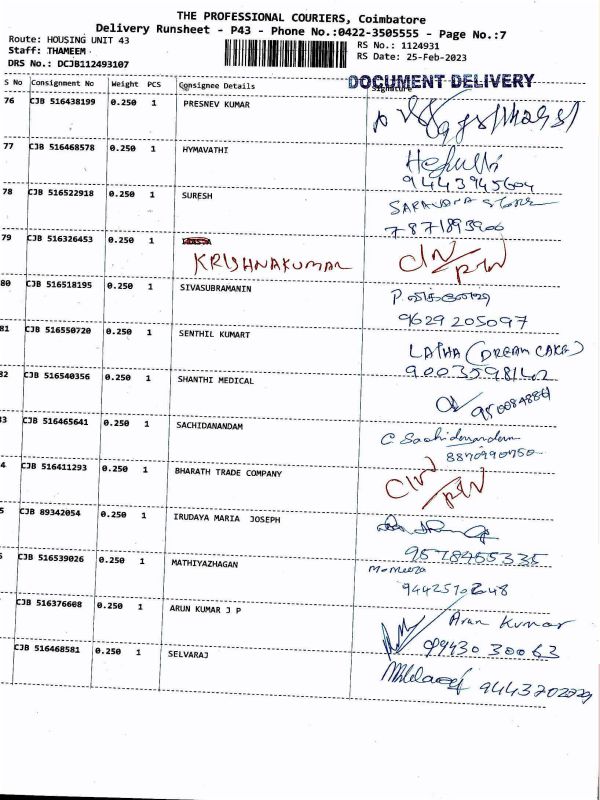 THE PROFESSIONAL COURIERS, Coimbatore
Delivery Runsheet - P43 - Phone No.:0422-3505555 - Page No.:7
Route: HOUSING UNIT 43
Staff: THAMEEM
DRS No.: DCJB112493107
RS No.: 1124931
RS Date: 25-Feb-2023
DOCUMENT DELIVERY
S No Consignment No Weight PCS Consignee Details Signature
76 CJB 516438199 0.250 1 PRESNEV KUMAR
77 CJB 516468578 0.250 1 HYMAVATHI
9443945604
78 CJB 516522918 0.250 1 SURESH SARAVANA STORE
7871893900
79 CJB 516326453 0.250 1
KRISHNAKUMAR
80 CJB 516518195 0.250 1 SIVASUBRAMANIN
9629205097
81 CJB 516550720 0.250 1 SENTHIL KUMART LATHA (DREAM CAKE)
9003598142
82 CJB 516540356 0.250 1 SHANTHI MEDICAL
83 CJB 516465641 0.250 1 SACHIDANANDAM C Sachidanandam
8870990750
4 CJB 516411293 0.250 1 BHARATH TRADE COMPANY
5 CJB 89342054 0.250 1 IRUDAYA MARIA JOSEPH
9578455335
CJB 516539026 0.250 1 MATHIYAZHAGAN
CJB 516376608 0.250 1 ARUN KUMAR J P Arun Kumar
9943030063
CJB 516468581 0.250 1 SELVARAJ
9443202029